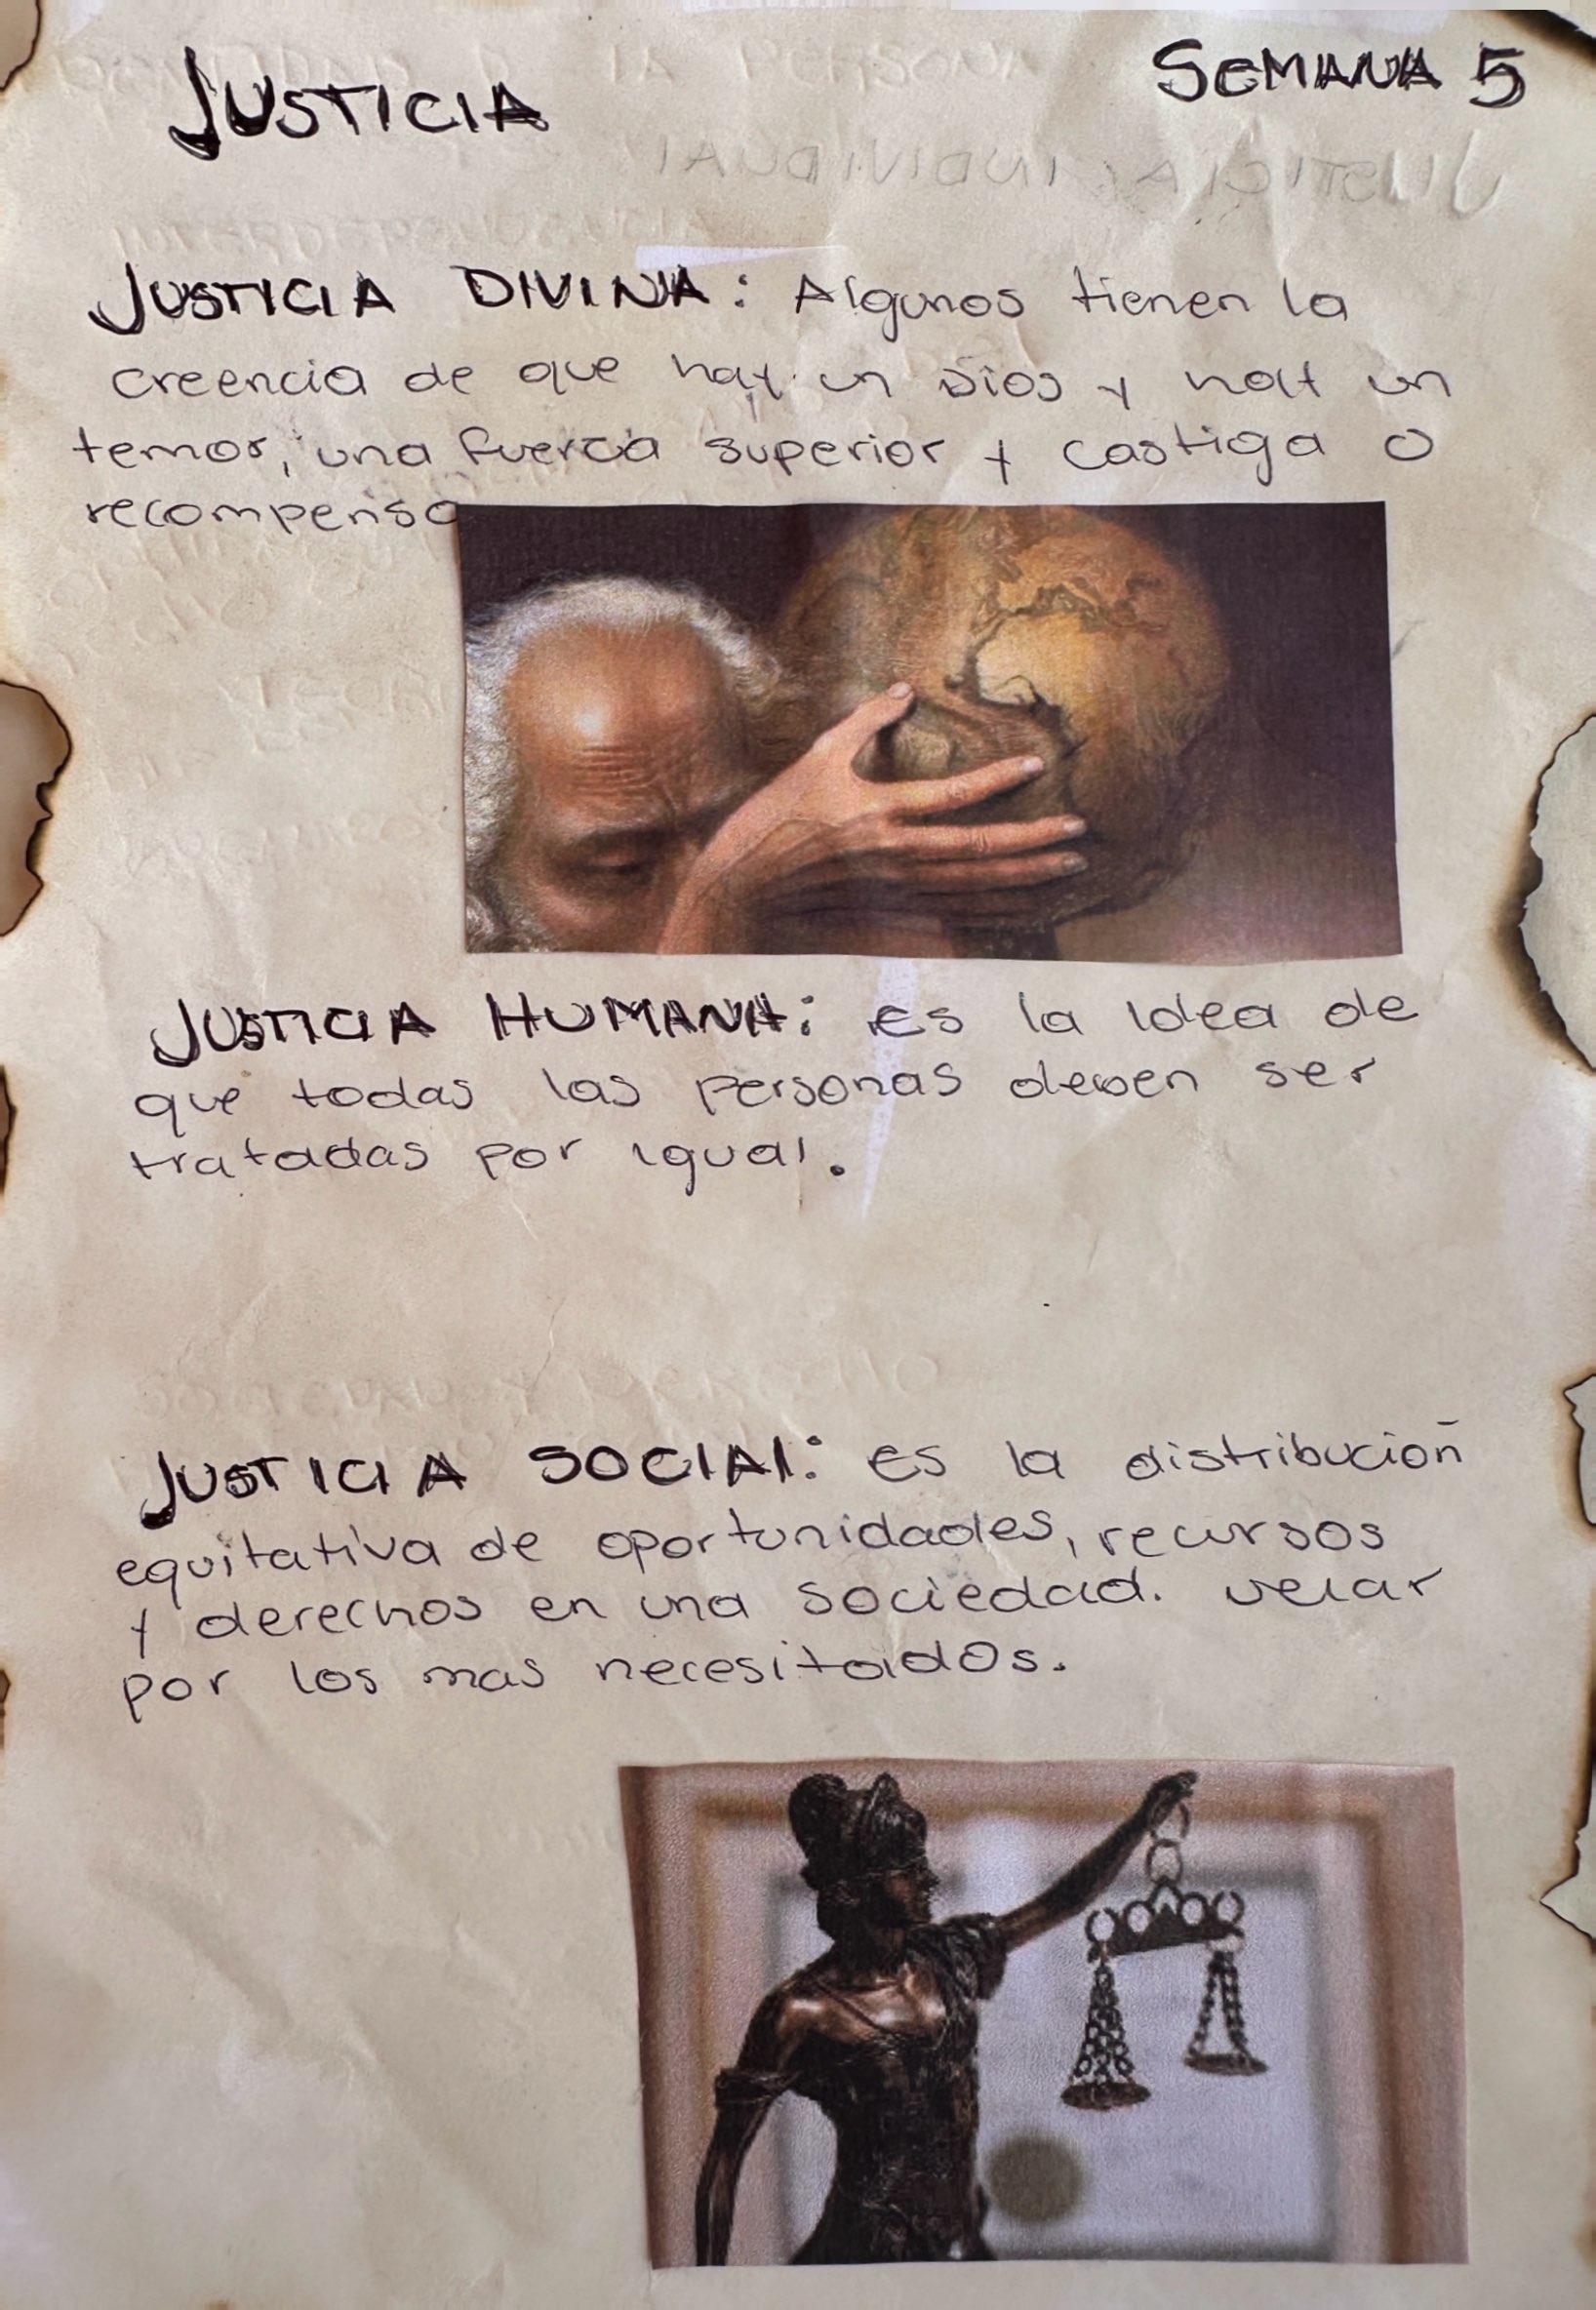 JUSTICIA
SEMANA 5
JUSTICIA DIVINA: Algunos tienen la
creencia de que hay un Dios y hay un
temor, una fuerza superior y castiga o
recompensa
JUSTICIA HUMANA: es la idea de
que todas las personas deben ser
tratadas por igual.
JUSTICIA SOCIAL: es la distribución
equitativa de oportunidades, recursos
y derechos en una sociedad. velar
por los mas necesitados.